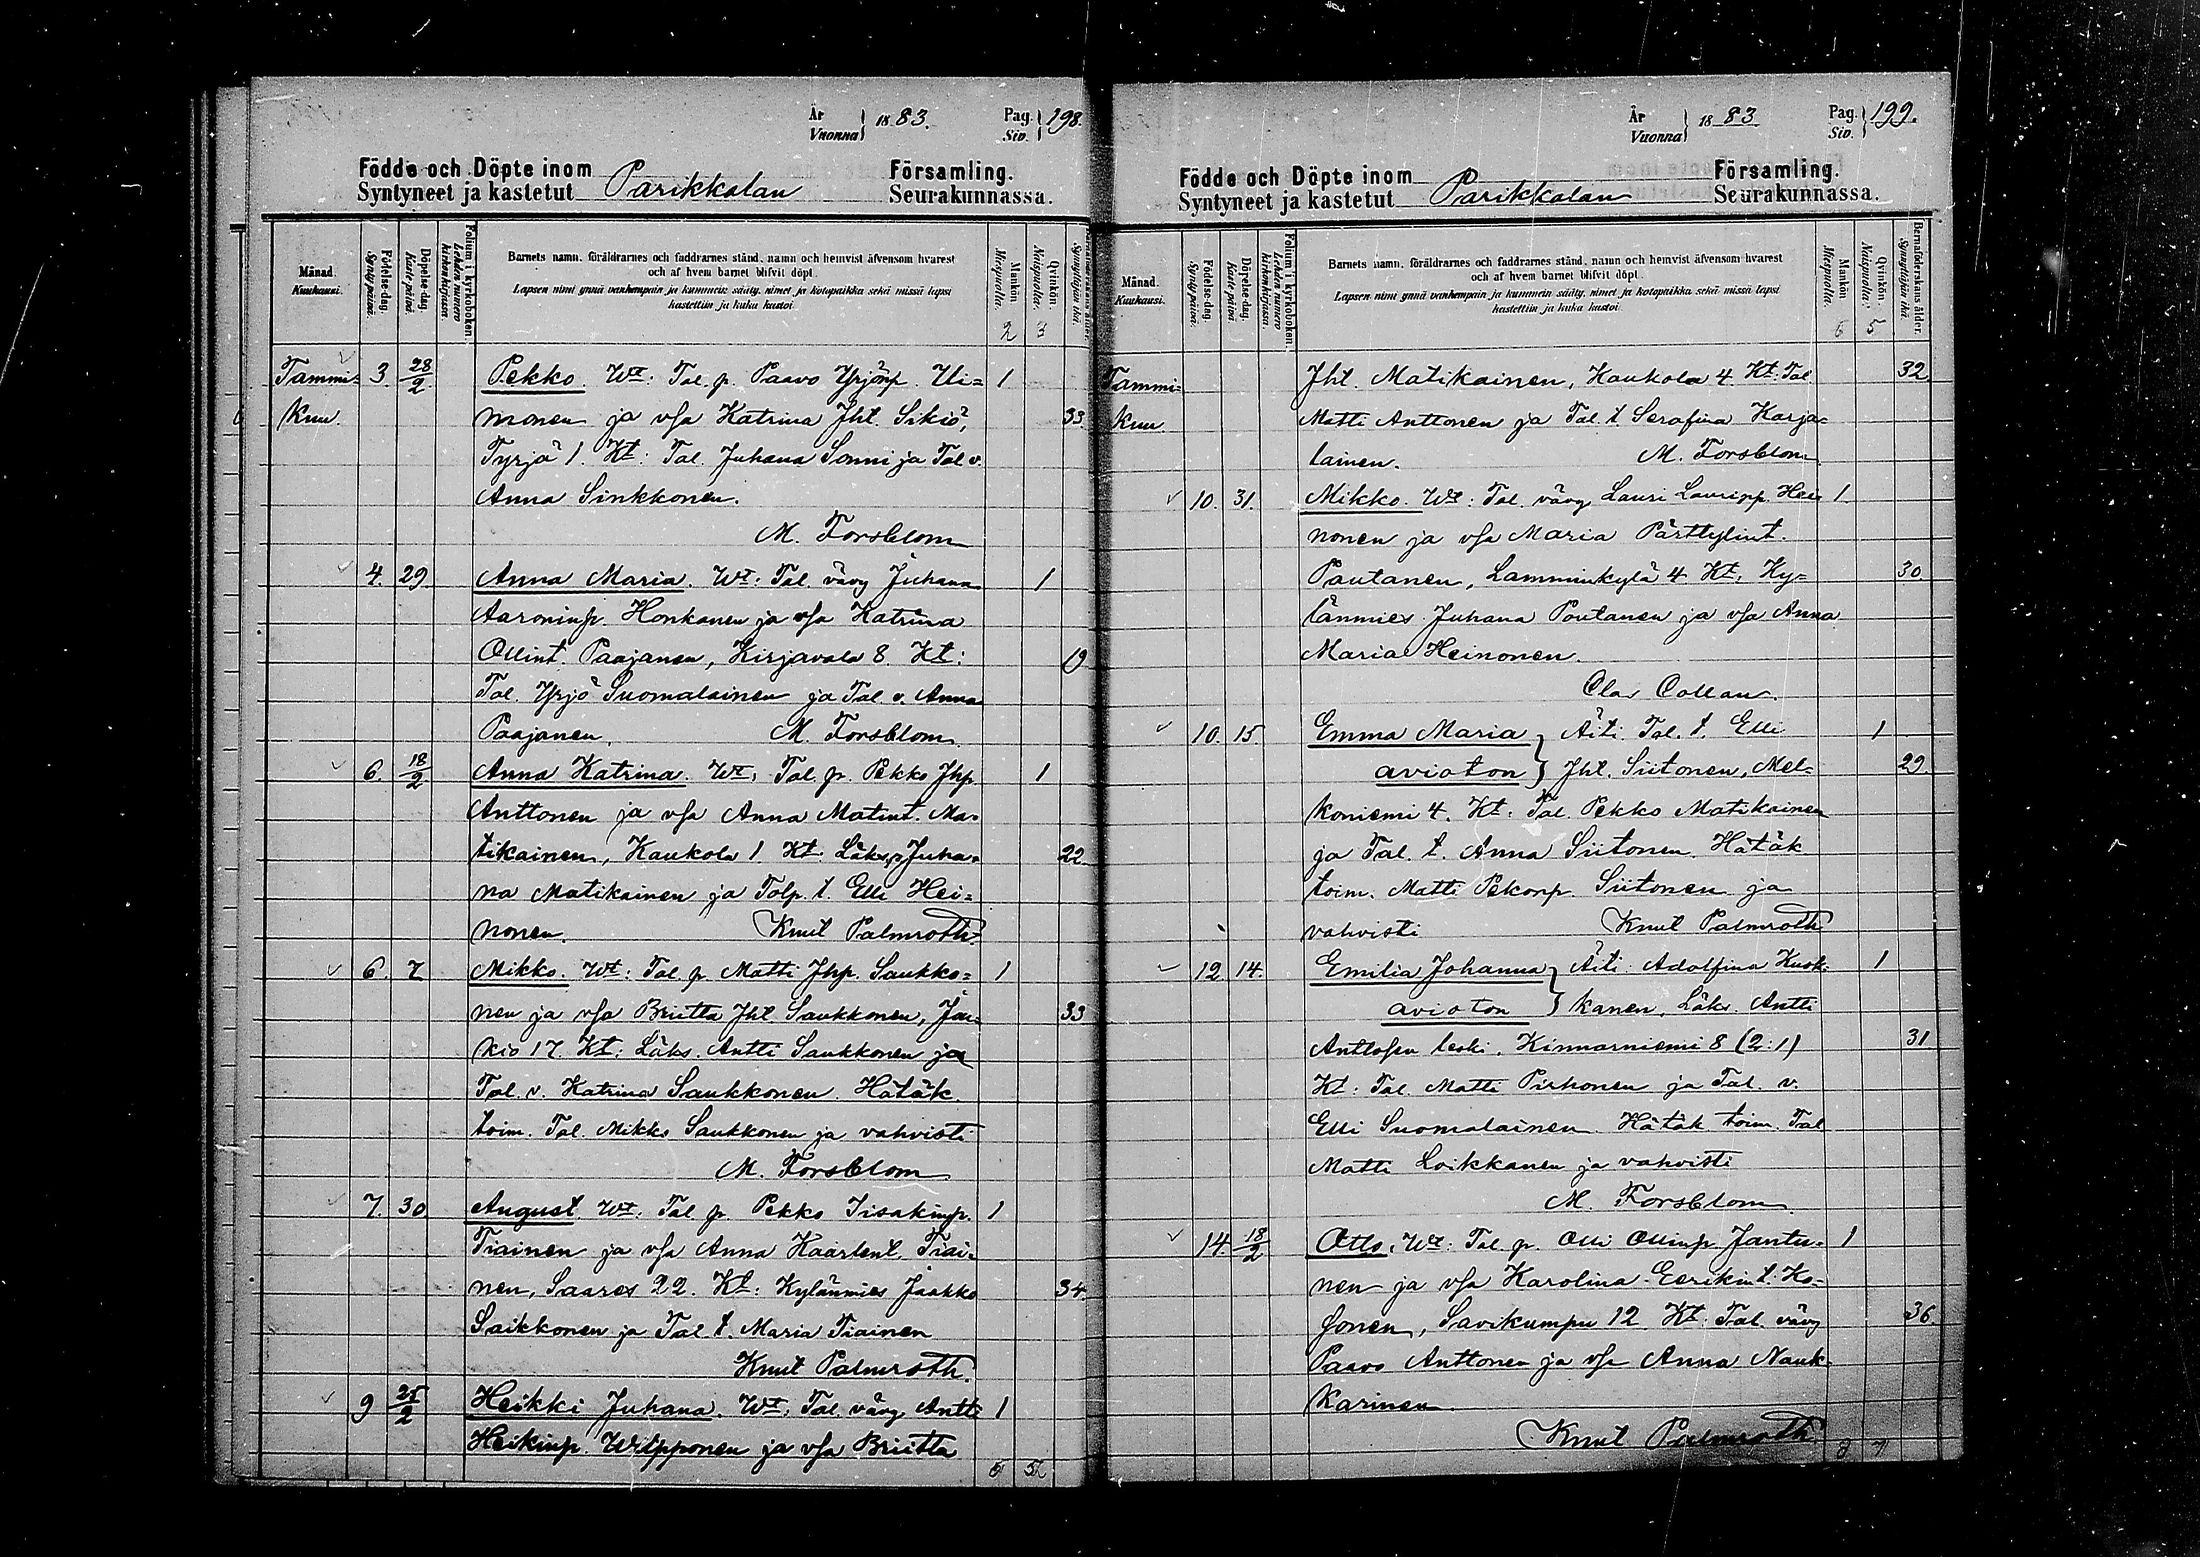 År
Vuonna } 1883.
Pag.
Siv. } 198.
Födde och Döpte inom
Syntyneet ja kastetut Parikkalan
Församling.
Seurakunnassa.
Månad.
Kuukausi.
Födelse-dag.
Synty päivä.
Döpelse-dag.
Kaste päivä.
Folium i kyrkoboken.
Lehden numero kirkonkirjassa.
Barnets namn, föräldrarnes och faddrarnes stånd, namn och hemvist äfvensom hvarest
och af hvem barnet blifvit döpt.
Lapsen nimi ynnä vanhempain ja kummein sääty, nimet ja kotopaikka sekä missä lapsi
kastettiin ja kuka kastoi.
Mankön
Miespuolta.
Qvinkön.
Naispuolta.
Synnyttäjän ikä.
2 3
Tammi= 3 28/2 Pekko Wt: Tal. p. Paavo Yrjönp. Ui= 1
kuu. monen ja vsa Katrina Jht. Sikiö, 33
Tyrjä 1. Kt: Tal. Juhana Sonni ja Tal v.
Anna Sinkkonen.
M. Forsblom
4. 29. Anna Maria. Wt: Tal. vävy Juhana 1
Aaroninp. Honkanen ja vsa Katrina
Ollint. Paajanen, Kirjavala 8. Kt: 19
Tal. Yrjö Suomalainen ja Tal. v. Anna
Paajanen. M. Forsblom.
6. 18/2 Anna Katrina. Wt: Tal. p. Pekko Jhp. 1
Anttonen ja vsa Anna Matint. Ma=
tikainen, Kaukola 1. Kt: Läks. p. Juha= 22.
na Matikainen ja Talp. t. Elli Hei=
nonen. Knut Palmroth.
6. 7 Mikko. Wt: Tal. p Matti Jhp. Saukko= 1
nen ja vsa Briitta Jht. Saukkonen, Jän= 33
kio 17. Kt: Läks. Antti Saukkonen ja
Tal. v. Katrina Saukkonen. Hätäk.
toim. Tal. Mikko Saukkonen ja vahvisti
M. Forsblom
7. 30. August. Wt: Tal. p. Pekko Iisakinp. 1
Tiainen ja vsa Anna Kaarlent. Tiai=
nen, Saares 22. Kt: Kylänmies Jaakko 34.
Saikkonen ja Tal. t. Maria Tiainen
Knut Palmroth.
9 25/2 Heikki Juhana. Wt: Tal. vävy Antti 1
Heikinp. Wilpponen ja vsa Briitta
6 5
År
Vuonna } 1883
Pag.
Siv. } 199.
Födde och Döpte inom
Syntyneet ja kastetut Parikkalan
Församling.
Seurakunnassa.
Månad.
Kuukausi.
Födelse-dag.
Synty päivä.
Döpelse-dag.
Kaste päivä.
Folium i kyrkoboken.
Lehden numero kirkonkirjassa.
Barnets namn, föräldrarnes och faddrarnes stånd, namn och hemvist äfvensom hvarest
och af hvem barnet blifvit döpt.
Lapsen nimi ynnä vanhempain ja kummein sääty, nimet ja kotopaikka sekä missä lapsi
kastettiin ja kuka kastoi.
Mankön
Miespuolta.
Qvinkön.
Naispuolta.
Barnaföderskans ålder.
Synnyttäjän ikä.
6 5
Tammi= Jht. Matikainen, Kaukola 4. Kt: Tal 32
kuu. Matti Anttonen ja Tal. t. Serafina Karja=
lainen. M. Forsblom
10. 31. Mikko. Wt: Tal. vävy Lauri Laurinp. Hei= 1
nonen ja vsa Maria Pärttylint.
Poutanen, Lamminkylä 4 Kt: Ky= 30.
länmies Juhana Poutanen ja vsa Anna
Maria Heinonen.
Clas Collan.
10. 15. Emma Maria } Äiti Tal. t. Elli 1
avioton } Jht. Siitonen, Mel= 29.
koniemi 4. Kt: Tal. Pekko Matikainen
ja Tal. t. Anna Siitonen. Hätäk
toim. Matti Pekonp. Siitonen ja
vahvisti Knut Palmroth
12 14. Emilia Johanna } Äiti. Adolfina Kuok= 1
avioton } kanen, Läks. Antti
Anttosen leski. Kinnarniemi 8 (2:1) 31
Kt: Tal. Matti Pirhonen ja Tal. v.
Elli Suomalainen Hätäk toim. Tal
Matti Loikkanen ja vahvisti
M. Forsblom.
14. 18/2 Otto. Wt: Tal. p. Olli Ollinp. Jantu= 1
nen ja vsa Karolina Eerikint. Ko=
sonen, Savikumpu 12 Kt: Tal. vävy 36.
Paavo Anttonen ja vsa Anna Nauk=
karinen.
Knut Palmroth
8 7